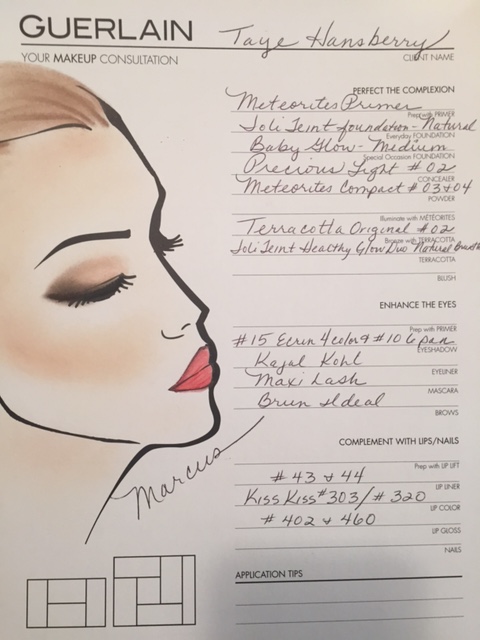 GUERLAIN
Taye Hansberry
YOUR MAKEUP CONSULTATION
CLIENT NAME
PERFECT THE COMPLEXION
Meteorites Primer
Prep with PRIMER
Joli Teint foundation - Natural
Everyday FOUNDATION
Baby Glow - Medium
Special Occasion FOUNDATION
Precious Light #02
CONCEALER
Meteorites Compact #03+04
POWDER
Illuminate with MÉTÉORITES
Terracotta Original #02
Bronze with TERRACOTTA
Joli Teint Healthy Glow Duo Natural
TERRACOTTA
BLUSH
ENHANCE THE EYES
Prep with PRIMER
#15 Ecrin 4 color & #10 6 pan
EYESHADOW
Kajal Kohl
EYELINER
Maxi Lash
MASCARA
Brun Ideal
BROWS
COMPLEMENT WITH LIPS/NAILS
Prep with LIP LIFT
#43 & 44
LIP LINER
KissKiss #303/#320
LIP COLOR
#402 & 460
LIP GLOSS
NAILS
Marcus
APPLICATION TIPS